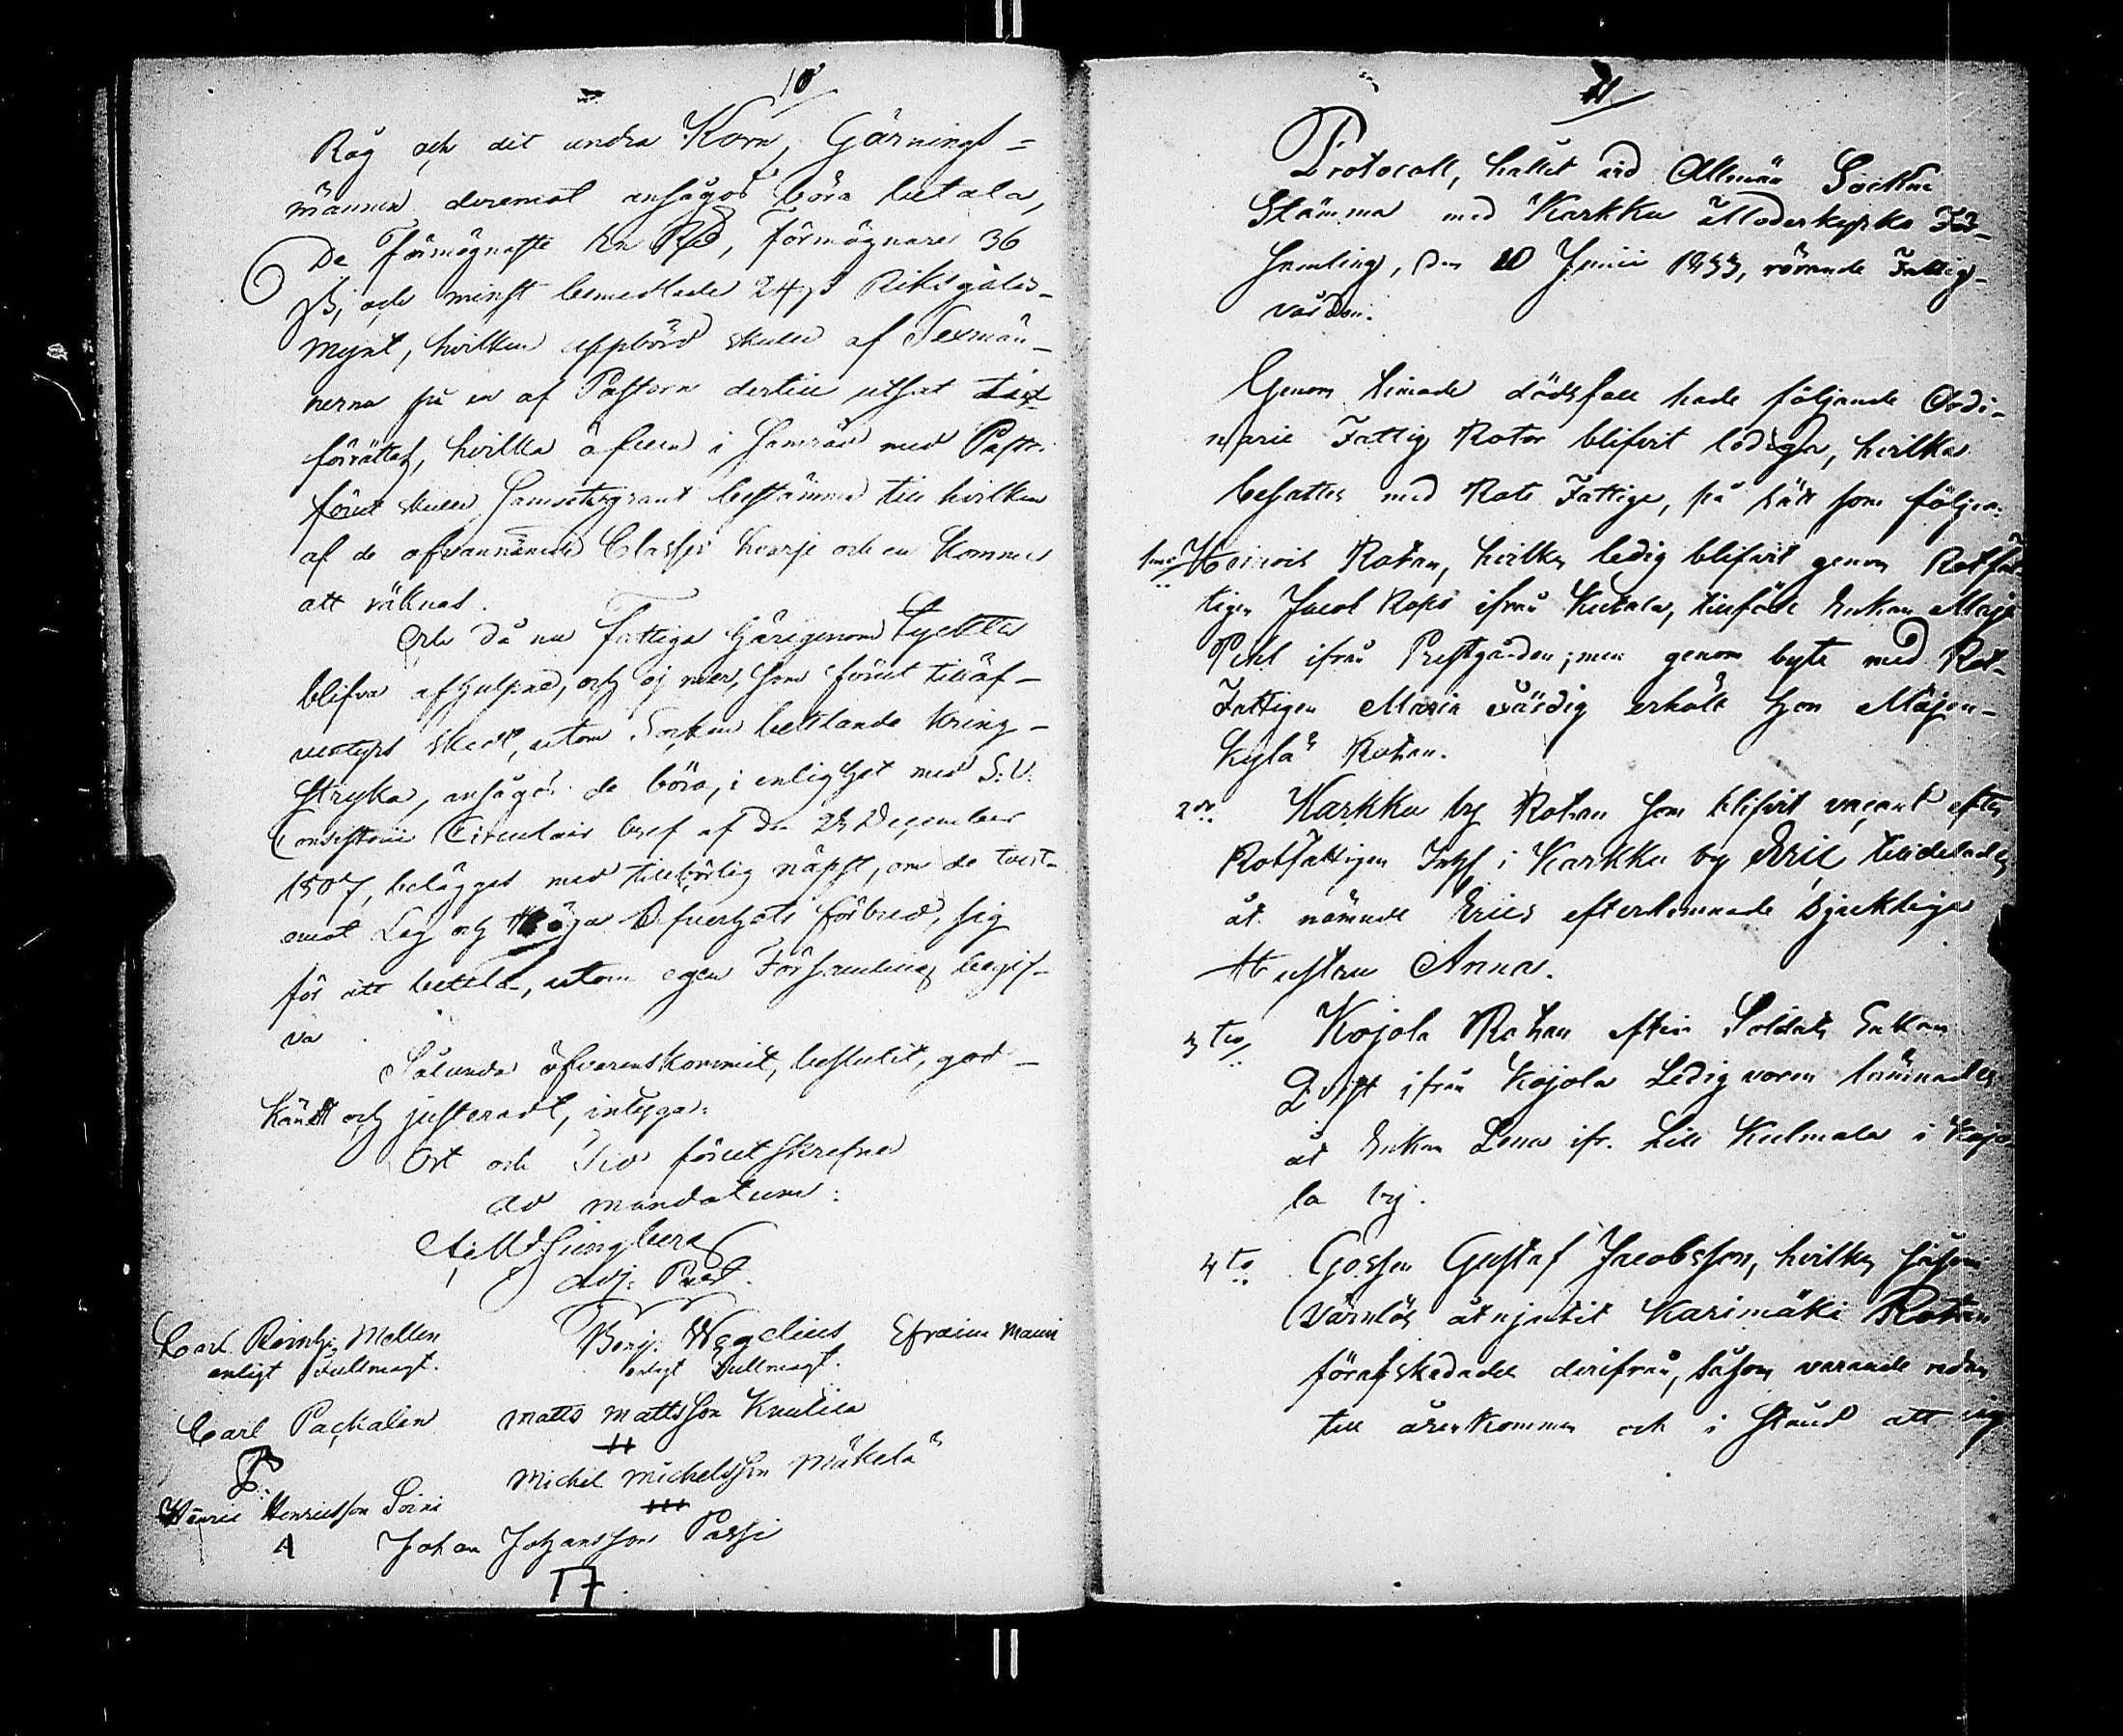 10
Råg och det andra Korn, Gärnings=
männen deremot ansågos böra betala,
De förmögnaste En Rd, förmögnare 36
ß, och minst bemedlade 24 ß Riksgälds-
mynt, hvilken uppbörd skulle af Sexmän-
nerna på en af Pastorn dertill utsat tid
förrättas, hvilka äfven i samråd med Pastor
förut skulle samvetsgrant bestämma till hvilken
af de ofvannämde Classer hvarje och en kommer
att räknas.
Och då nu Fattiga härigenom tyckttes
blifva afhulpne, och ej mer, som förut tilläf-
ventyrs skedt, utom Socken bettlande kring-
stryka, ansågos de böra, i enlighet med S: V:
Consistorii Circulair bref af den 28 December
1807, beläggas med tillbörlig näpst, om de tvert-
emot Lag och Höga Öfverhets förbud, sig
för att bettla, utom egen Församling begif-
va.
Sålunda öfverenskommit, beslutit, god-
kändt och justeradt, intygar:
Ort och Tid förutskrefne
ad mandatum:
Ljungberg
Adj: Past.
Carl Reinh: Mellen
enligt Fullmagt.
Benj. Wegelius
enligt Fullmagt.
Efraim Mauri
Carl Packalen
Matts Mattsson Knutila
Michel Michelsson Mäkelä
Henric Henricsson Soini
Johan Johansson Passi
11
Protocoll, hållit vid Allmän Sockne
Stämma med Karkku Moderkyrko För-
samling, den 10 Junii 1833, rörande Fattig-
vården.
Genom timade dödsfall hade följande Ordi-
narie Fattig Rotar blifvit lediga, hvilka
besattes med Rote Fattige, på sätt som följer:
1mo Heinois Rotan, hvilken ledig blifvit genom Rotfat-
tigen Jacob Rops ifrån Kutala, tillföll Enkan Maja
Pihl ifrån Prestgården; men genom byte med Rot-
Fattigen Maria Värdig erhöll hon Märjen-
kylä Rotan.
2do Karkku by Rotan som blifvit vacant efter
Rotfattigen Inhs i Karkku by Eric tilldelades
åt nämnde Erics efterlemnade sjukliga
Hustru Anna.
3tio Kojola Rotan efter Soldats Enkan
Qvist ifrån Kojola Ledig voren lämnades
åt Enkan Lena ifr. Lill Kulmala i Kojo
la by.
4to Gossen Gustaf Jacobsson, hvilken såsom
värnlös åtnjutit Karimäki Rotan
förafskedades derifrån, såsom varande redan
till åren kommen och i stånd att sig